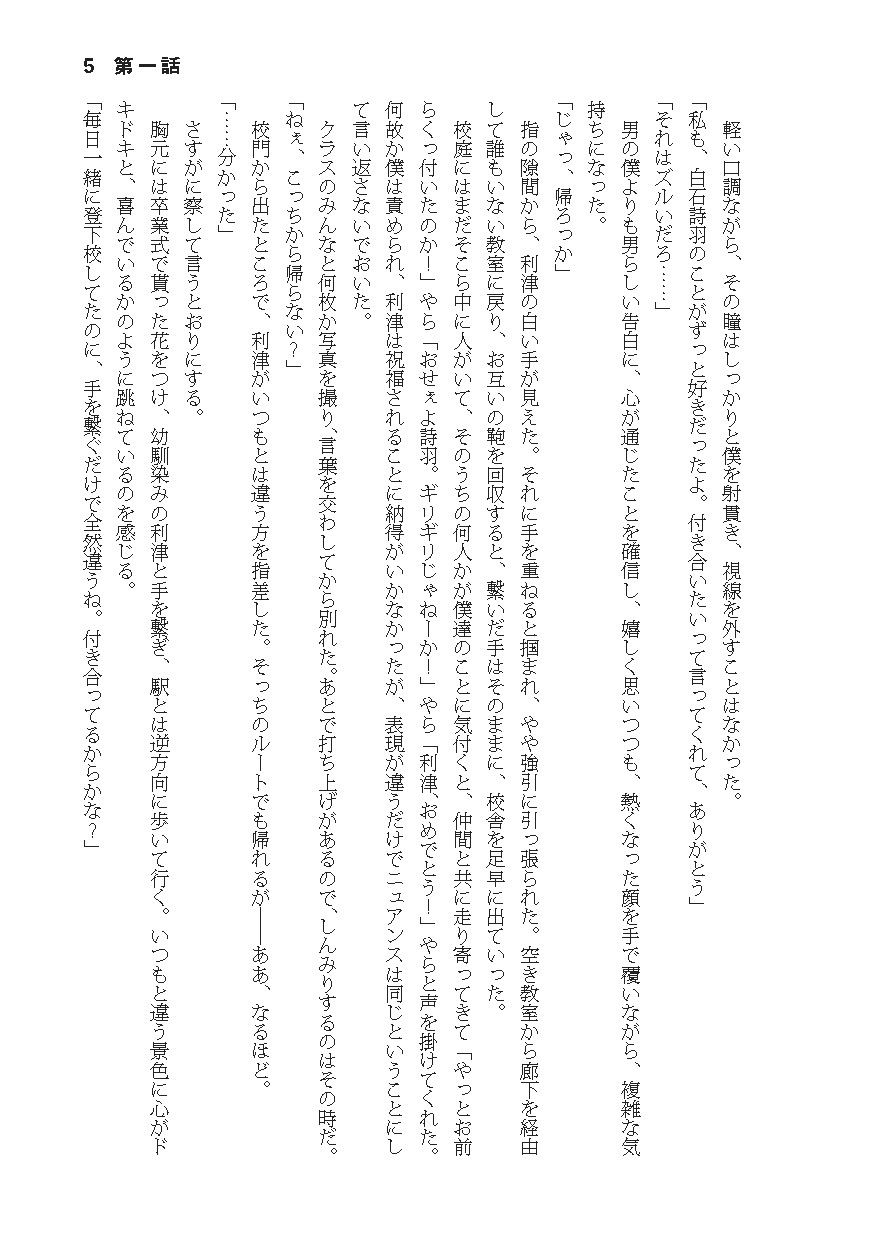 5 第一話
　軽い口調ながら、その瞳はしっかりと僕を射貫き、視線を外すことはなかった。
「私も、白石詩羽のことがずっと好きだったよ。付き合いたいって言ってくれて、ありがとう」
「それはズルいだろ……」
　男の僕よりも男らしい告白に、心が通じたことを確信し、嬉しく思いつつも、熱くなった顔を手で覆いながら、複雑な気
持ちになった。
「じゃっ、帰ろっか」
　指の隙間から、利津の白い手が見えた。それに手を重ねると掴まれ、やや強引に引っ張られた。空き教室から廊下を経由
して誰もいない教室に戻り、お互いの鞄を回収すると、繋いだ手はそのままに、校舎を足早に出ていった。
　校庭にはまだそこら中に人がいて、そのうちの何人かが僕達のことに気付くと、仲間と共に走り寄ってきて「やっとお前
らくっ付いたのか！」やら「おせぇよ詩羽。ギリギリじゃねーか！」やら「利津、おめでとう！」やらと声を掛けてくれた。
何故か僕は責められ、利津は祝福されることに納得がいかなかったが、表現が違うだけでニュアンスは同じということにし
て言い返さないでおいた。
　クラスのみんなと何枚か写真を撮り、言葉を交わしてから別れた。あとで打ち上げがあるので、しんみりするのはその時だ。
「ねぇ、こっちから帰らない？」
　校門から出たところで、利津がいつもとは違う方を指差した。そっちのルートでも帰れるが――ああ、なるほど。
「……分かった」
　さすがに察して言うとおりにする。
　胸元には卒業式で貰った花をつけ、幼馴染みの利津と手を繋ぎ、駅とは逆方向に歩いて行く。いつもと違う景色に心がド
キドキと、喜んでいるかのように跳ねているのを感じる。
「毎日一緒に登下校してたのに、手を繋ぐだけで全然違うね。付き合ってるからかな？」